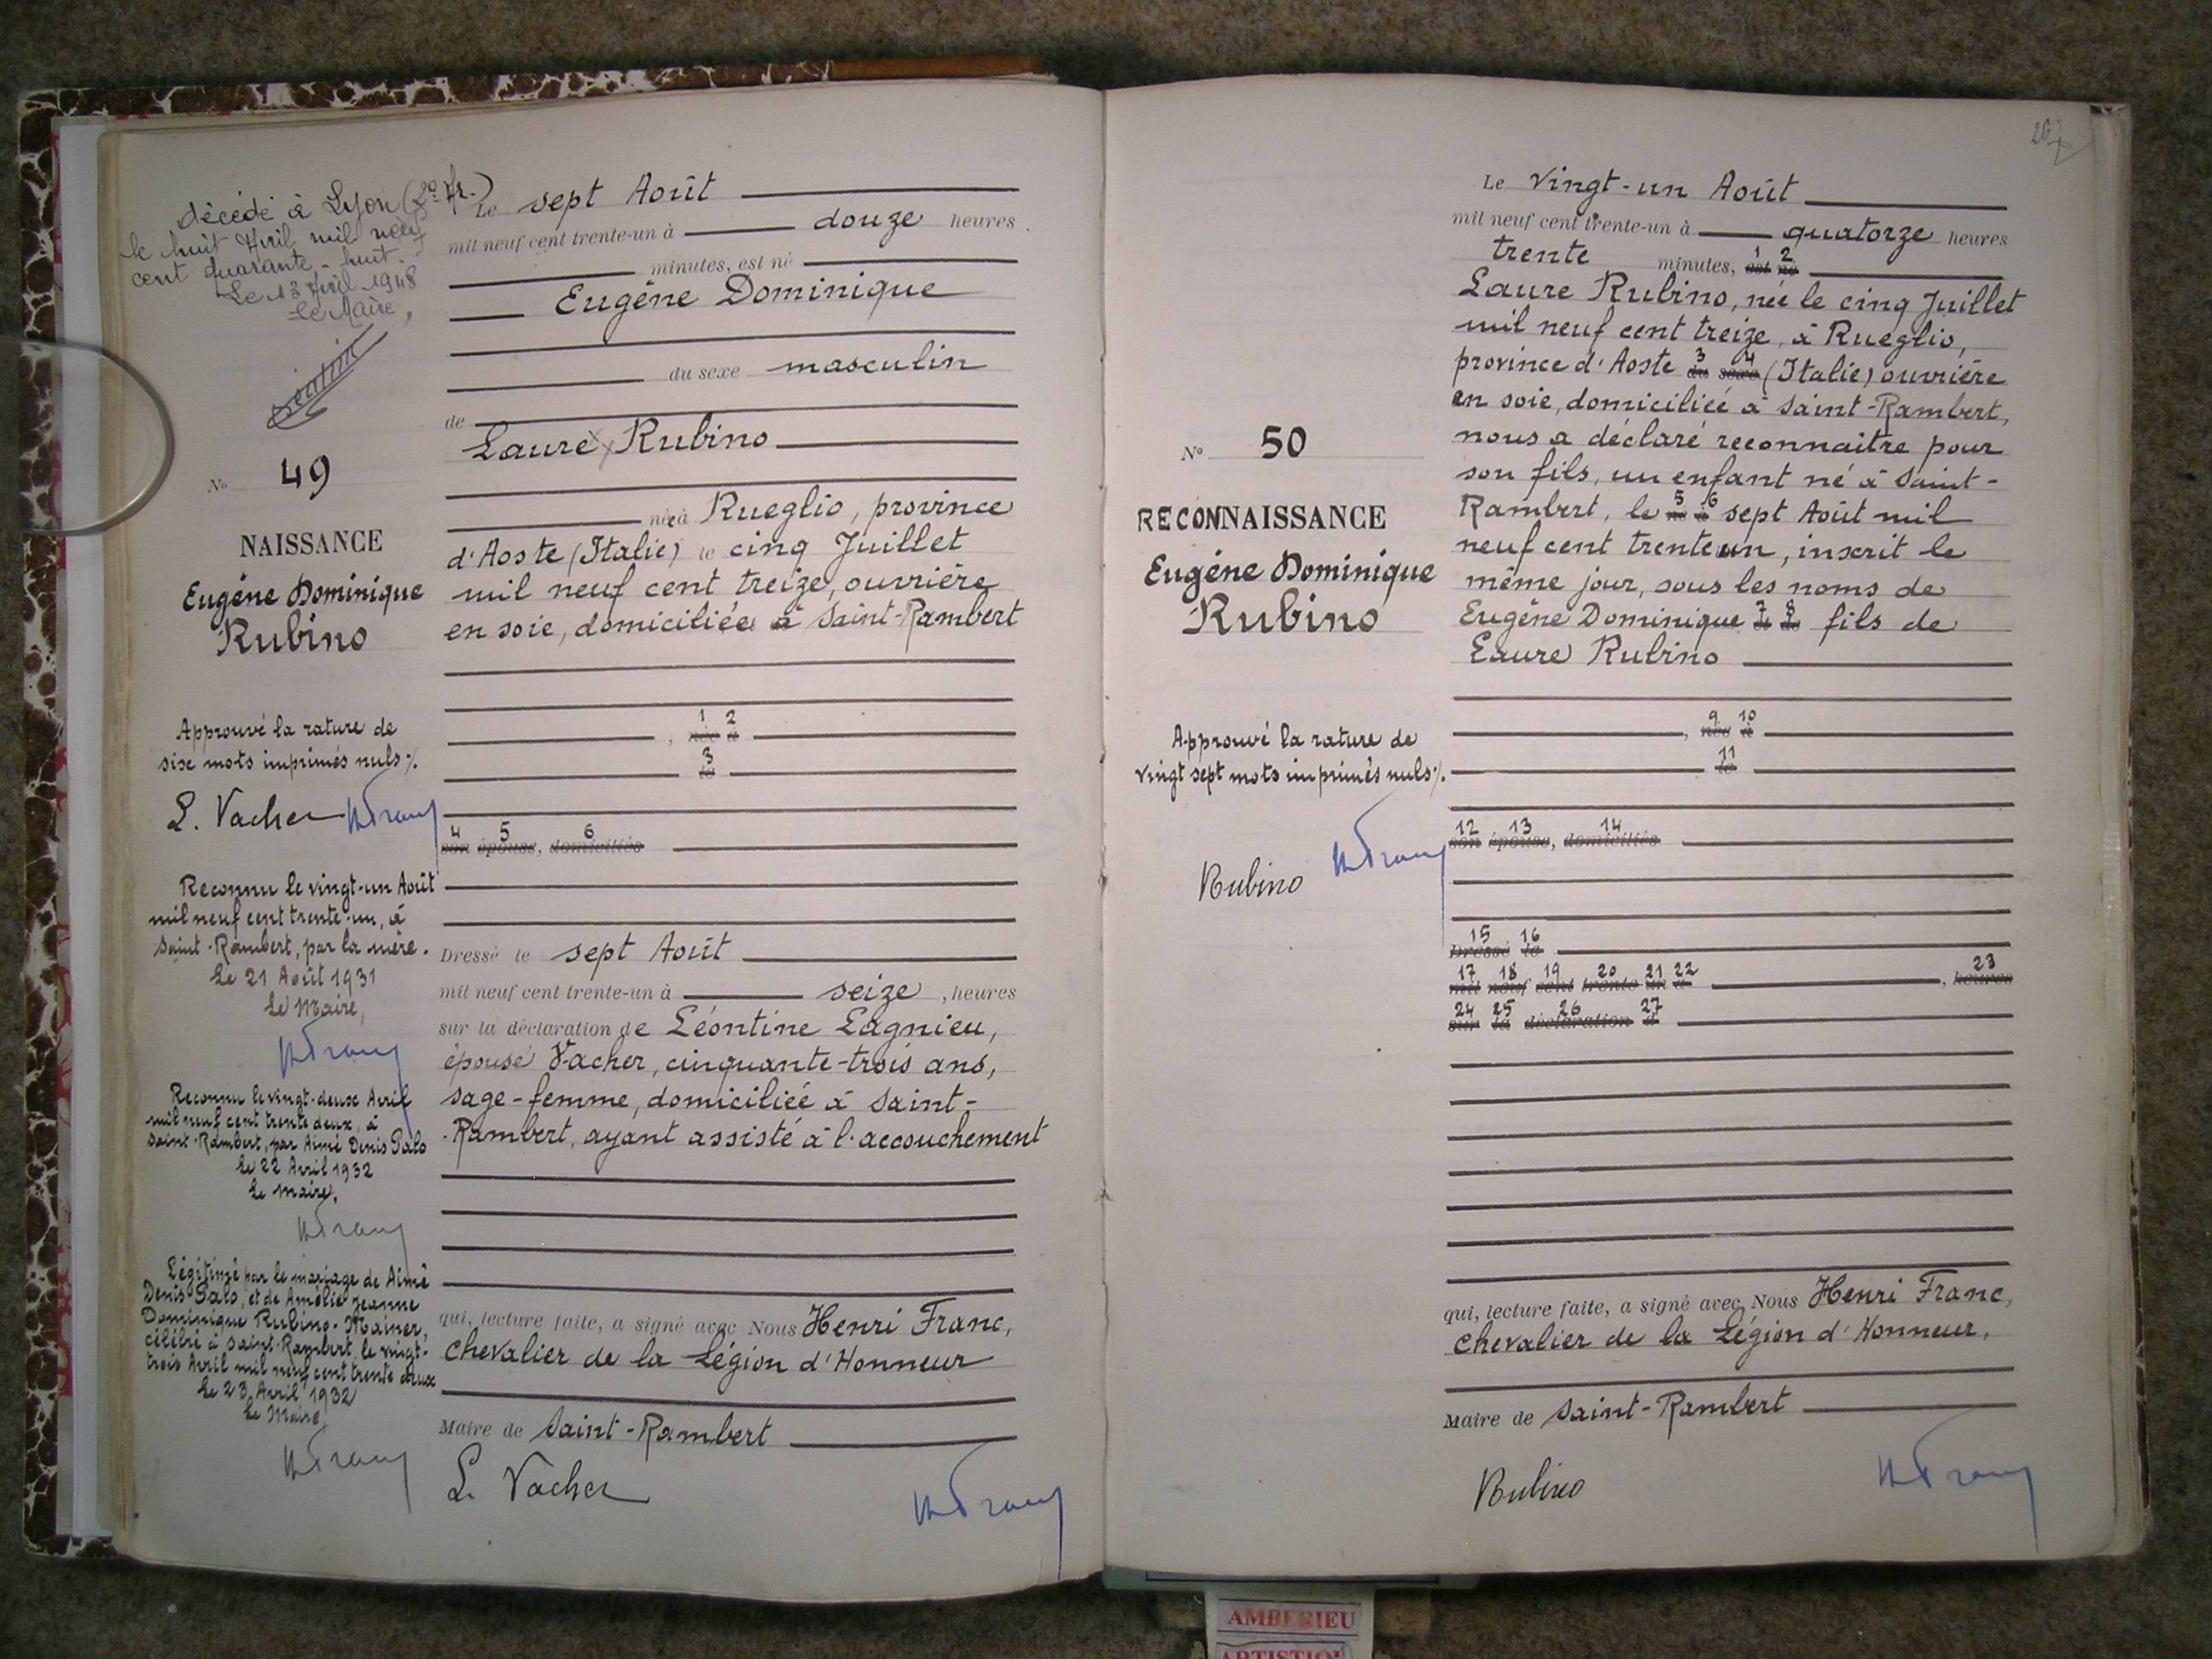 décédé à Lyon (2e Ar.)
le huit Avril mil neuf
cent quarante-huit.
Le 13 Avril 1948
Le Maire,
No 49
NAISSANCE
Eugène Dominique
Rubino
Approuvé la rature de
six mots imprimés nuls ./.
L. Vacher HFranc
Reconnu le vingt-un Août
mil neuf cent trente-un, à
Saint-Rambert, par la mère.
Le 21 Août 1931
Le Maire,
HFranc
Reconnu le vingt-deux Avril
mil neuf cent trente deux, à
Saint-Rambert, par Aimé Denis Palo
Le 22 Avril 1932
Le Maire,
HFranc
Légitimé par le mariage de Aimé
Denis Palo, et de Amélie Jeanne
Dominique Rubino-Mainer,
célébré à Saint-Rambert, le vingt-
trois Avril mil neuf cent trente deux
Le 23 Avril 1932
Le Maire,
HFranc
Le sept Août
mil neuf cent trente-un à douze heures
minutes, est né
Eugène Dominique
du sexe masculin
de
Laure Rubino
née à Rueglio, province
d'Aoste (Italie) le cinq Juillet
mil neuf cent treize, ouvrière
en soie, domiciliée à Saint-Rambert
1 2
, née à
3
le
4 5 6
son épouse, domiciliés
Dressé le sept Août
mil neuf cent trente-un à seize , heures
sur la déclaration de Léontine Lagnieu,
épouse Vacher, cinquante-trois ans,
sage-femme, domiciliée à Saint-
-Rambert, ayant assisté à l'accouchement
qui, lecture faite, a signé avec Nous Henri Franc,
Chevalier de la Légion d'Honneur
Maire de Saint-Rambert
L. Vacher HFranc
No 50
RECONNAISSANCE
Eugène Dominique
Rubino
Approuvé la rature de
vingt sept mots imprimés nuls ./.
Rubino HFranc
Le vingt-un Août
mil neuf cent trente-un à quatorze heures
1 2
trente minutes, est né
Laure Rubino, née le cinq Juillet
mil neuf cent treize, à Rueglio,
3 4
province d'Aoste du sexe (Italie) ouvrière
en soie, domiciliée à Saint-Rambert,
nous a déclaré reconnaitre pour
son fils, un enfant né à Saint-
5 6
Rambert, le né à sept Août mil
neuf cent trente un, inscrit le
même jour, sous les noms de
7 8
Eugène Dominique le de fils de
Laure Rubino
9 10
, née à
11
le
12 13 14
son épouse, domiciliés
15 16
Dressé le
17 18 19 20 21 22 23
mil neuf cent trente-un à , heures
24 25 26 27
sur la déclaration d
qui, lecture faite, a signé avec Nous Henri Franc,
Chevalier de la Légion d'Honneur,
Maire de Saint-Rambert
Rubino HFranc
AMBERIEU